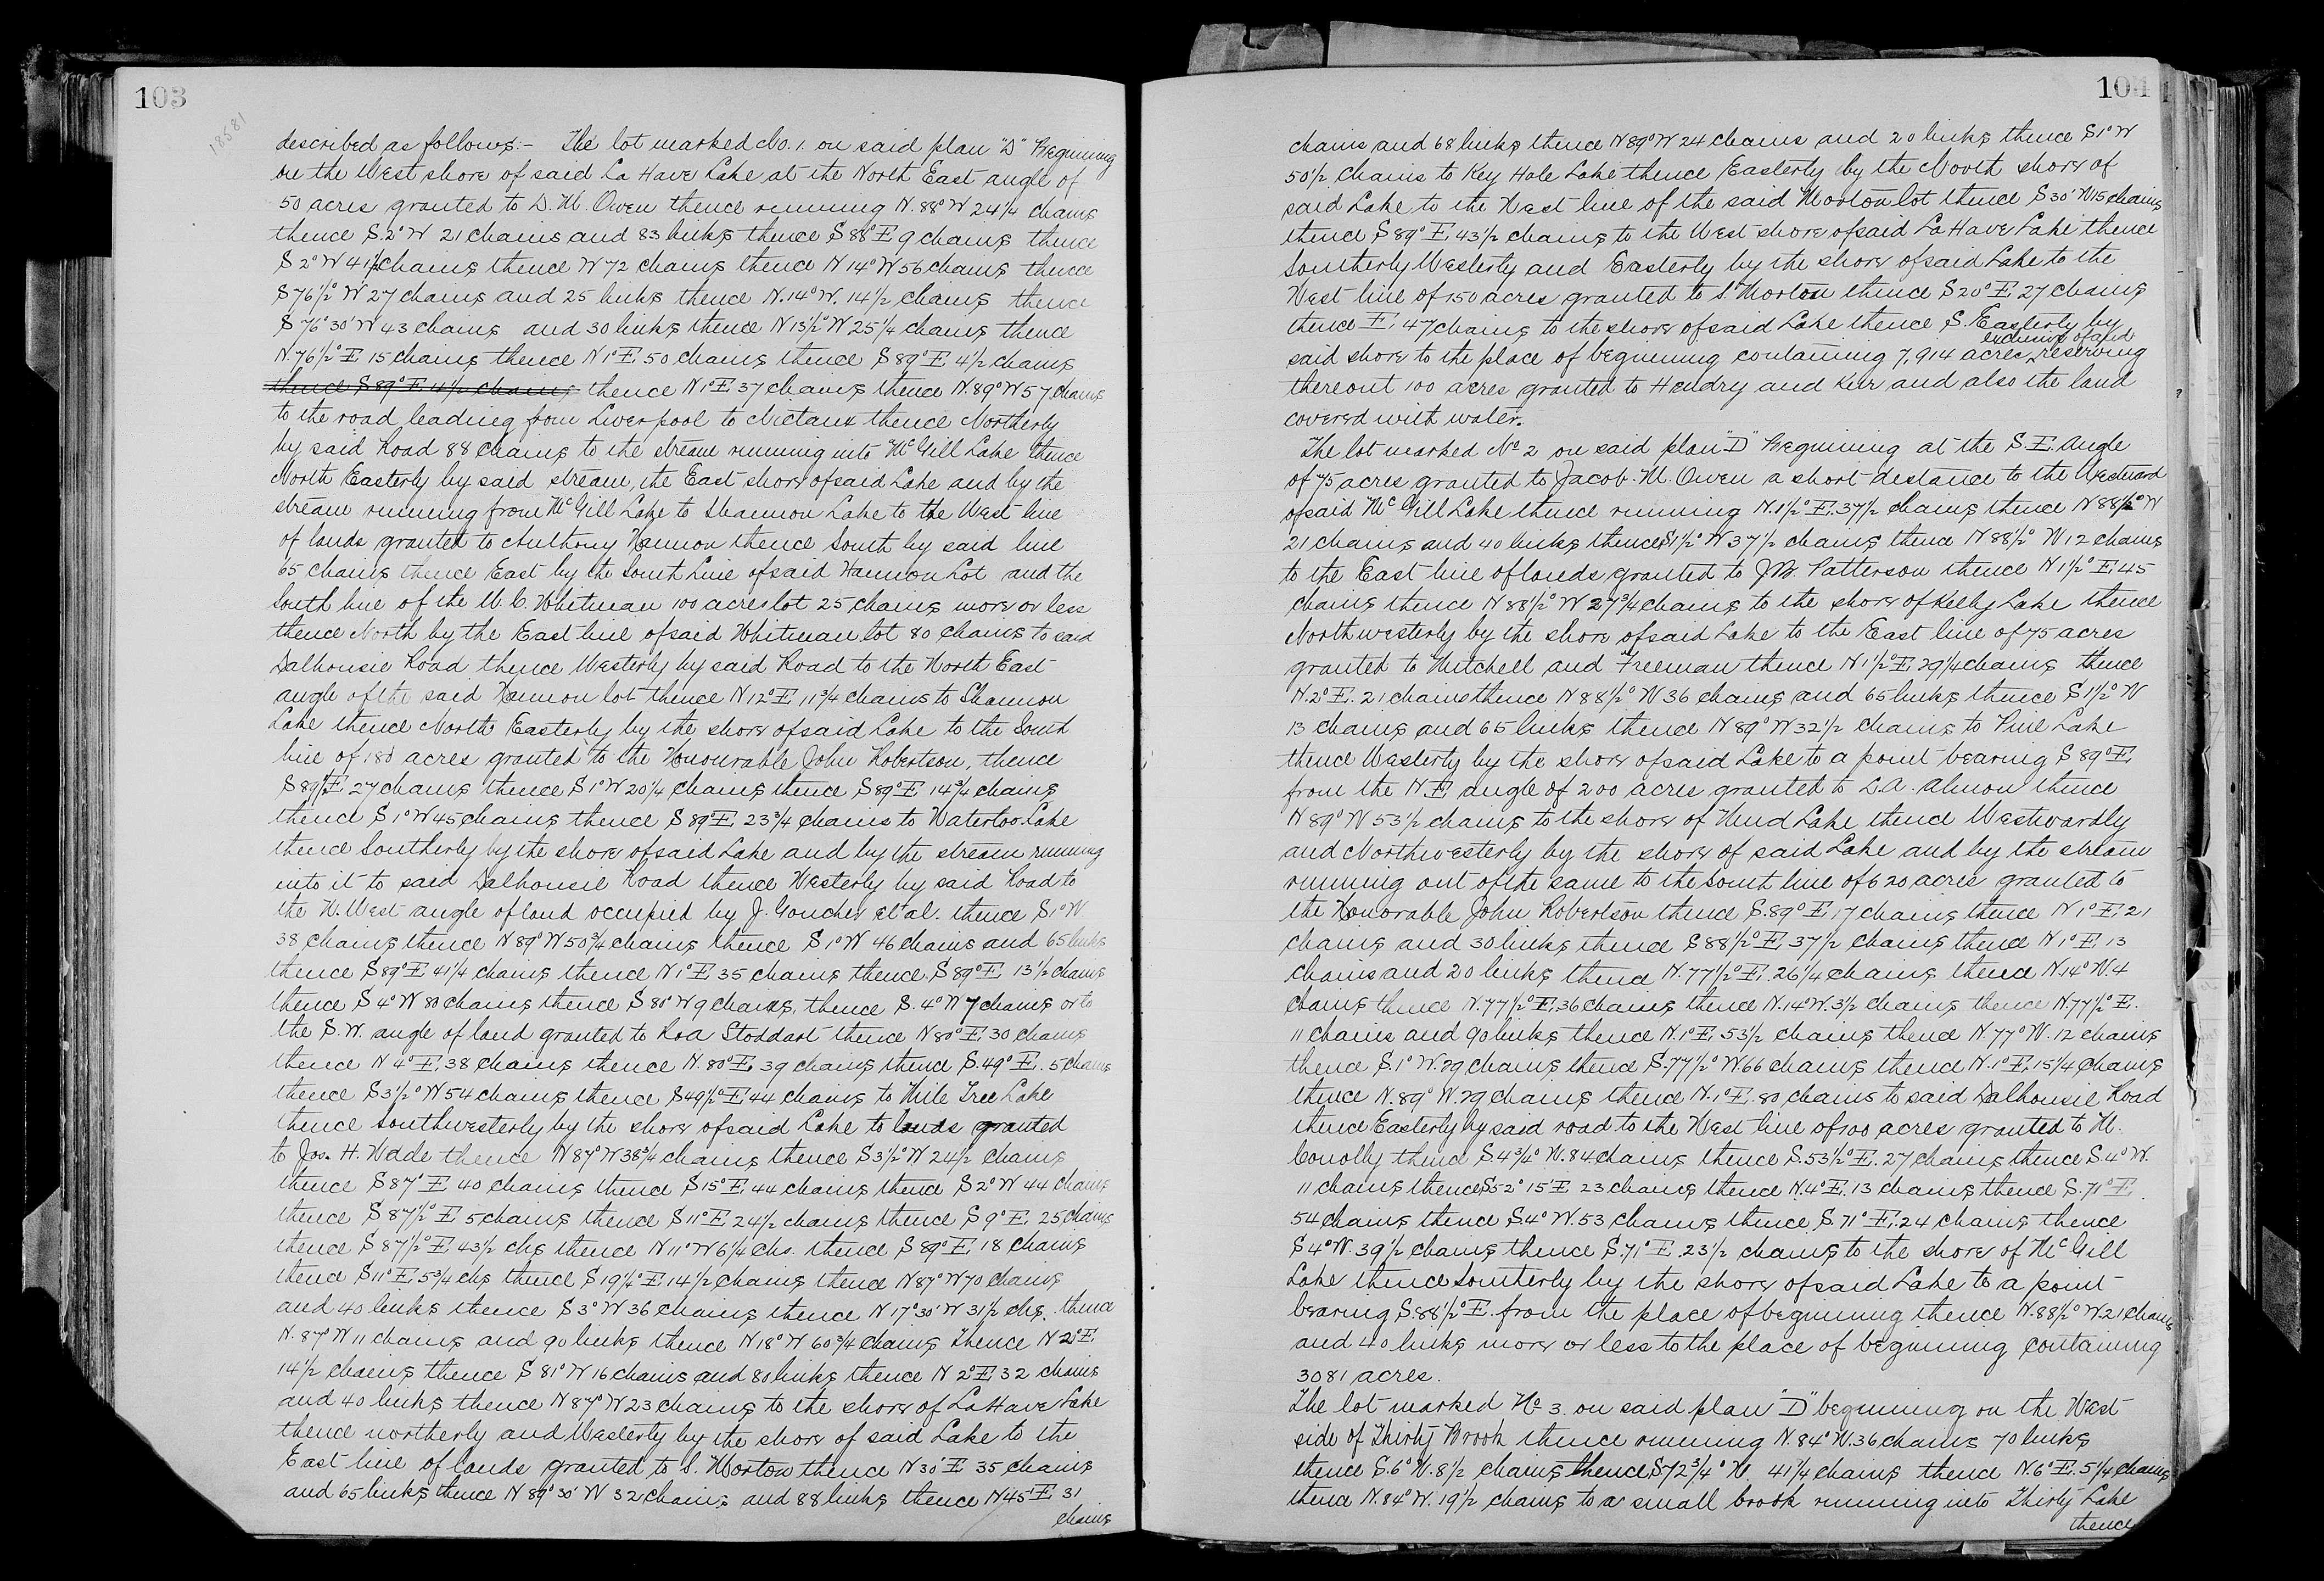 103
18581
described as follows:- The lot marked No. 1. on said plan "D" Beginning
on the West shore of said La Have Lake at the North East angle of
50 acres granted to D. M. Owen thence running N. 88° W 24 1/4 chains
thence S. 2° W 21 chains and 83 links thence S 88° E 9 chains thence
S 2° W 41 1/2 chains thence W 72 chains thence N 14° W 56 chains thence
S 76 1/2° W 27 chains and 25 links thence N. 14° W. 14 1/2 chains thence
S 76° 30' W 43 chains and 30 links thence N 13 1/2° W 25 1/4 chains thence
N. 76 1/2° E 15 chains thence N 1° E. 50 chains thence S 89° E 4 1/2 chains
thence S 89° E 4 1/2 chains thence N 1° E 37 chains thence N. 89° W 57 chains
to the road leading from Liverpool to Nictaux thence Northerly
by said Road 88 chains to the stream running into McGill Lake thence
North Easterly by said stream, the East shore of said Lake and by the
stream running from McGill Lake to Shannon Lake to the West line
of lands granted to Anthony Hannon thence South by said line
65 chains thence East by the South Line of said Hannon Lot and the
South line of the W. C. Whitman 100 acres lot 25 chains more or less
thence North by the East line of said Whitman lot 80 chains to said
Dalhousie Road thence Westerly by said Road to the North East
angle of the said Hannon lot thence N 12° E 11 3/4 chains to Shannon
Lake thence North Easterly by the shore of said Lake to the South
line of 180 acres granted to the Honourable John Robertson, thence
S 89° E 27 chains thence S 1° W 20 1/4 chains thence S 89° E 14 3/4 chains
thence S 1° W 45 chains thence S 89° E 23 3/4 chains to Waterloo Lake
thence Southerly by the shore of said Lake and by the stream running
into it to said Dalhousie Road thence Westerly by said Road to
the N. West angle of land occupied by J. Goucher et al. thence S 1° W
38 chains thence N 89° W 50 3/4 chains thence S 1° W 46 chains and 65 links
thence S 89° E 41 1/4 chains thence N 1° E 35 chains thence S 89° E 13 1/2 chains
thence S 4° W 80 chains thence S 80° W 9 chains, thence S. 4° W 7 chains or to
the S. W. angle of land granted to Stoddart thence N 80° E 30 chains
thence N 4° E. 38 chains thence N. 80° E. 39 chains thence S. 49° E. 5 chains
thence S 3 1/2° W 54 chains thence S 49 1/2° E 44 chains to Mile Tree Lake
thence Southwesterly by the shore of said Lake to lands granted
to Jos. H. Wade thence N 87° W 38 3/4 chains thence S 3 1/2° W 24 1/2 chains
thence S 87° E 40 chains thence S 15° E 44 chains thence S 2° W 44 chains
thence S 87 1/2° E 5 chains thence S 11° E 24 1/2 chains thence S 9° E. 25 chains
thence S 87 1/2° E 43 1/2 chs thence N 11° W 6 1/4 chs. thence S 89° E 18 chains
thence S 11° E. 5 3/4 chs thence S 19 1/2° E 14 1/2 chains thence N 87° W 70 chains
and 40 links thence S 3° W 36 chains thence N 17° 30' W 31 1/2 chs. thence
N. 87° W 11 chains and 90 links thence N 18° W 60 3/4 chains thence N 2° E.
14 1/2 chains thence S 81° W 16 chains and 80 links thence N 2° E 32 chains
and 40 links thence N 87° W 23 chains to the shore of La Have Lake
thence northerly and Westerly by the shore of said Lake to the
East line of lands granted to S. Morton thence N 30' E 35 chains
and 65 links thence N 89° 30' W 32 chains and 88 links thence N 45' E 31
chains
104
chains and 68 links thence N 89° W 24 chains and 20 links thence S 1° W
50 1/2 chains to Key Hole Lake thence Easterly by the North shore of
said Lake to the West line of the said Morton lot thence S 30' W 15 chains
thence S 89° E. 43 1/2 chains to the West shore of said La Have Lake thence
Southerly Westerly and Easterly by the shore of said Lake to the
West line of 150 acres granted to S. Morton thence S 20° E 27 chains
thence E. 47 chains to the shore of said Lake thence S. Easterly by
said shore to the place of beginning containing 7,914 acres exclusive of and reserving
thereout 100 acres granted to Hendry and Kerr and also the land
covered with water.
The lot marked No 2 on said plan "D" Beginning at the S. E. Angle
of 75 acres granted to Jacob. M. Owen a short distance to the Westward
of said McGill Lake thence running N. 1 1/2° E. 37 1/2 chains thence N 88 1/2° W
21 chains and 40 links thence S 1 1/2° W 37 1/2 chains thence N 88 1/2° W 12 chains
to the East line of lands granted to J. W. Patterson thence N 1 1/2° E. 45
chains thence N 88 1/2° W 27 3/4 chains to the shore of Kelly Lake thence
Northwesterly by the shore of said Lake to the East line of 75 acres
granted to Mitchell and Freeman thence N 1 1/2° E. 29 1/4 chains thence
N. 2° E. 21 chains thence N 88 1/2° W 36 chains and 65 links thence S 1 1/2° W
13 chains and 65 links thence N 89° W 32 1/2 chains to Pine Lake
thence Westerly by the shore of said Lake to a point bearing S 89° E
from the N E angle of 200 acres granted to L. A. Almon thence
N 89° W 53 1/2 chains to the shore of Mud Lake thence Westwardly
and Northwesterly by the shore of said Lake and by the stream
running out of the same to the South line of 620 acres granted to
the Honorable John Robertson thence S. 89° E. 17 chains thence N 1° E. 21
chains and 30 links thence S 88 1/2° E. 37 1/2 chains thence N 1° E. 13
chains and 20 links thence N. 77 1/2° E. 26 1/4 chains thence N. 14° W. 4
chains thence N. 77 1/2° E. 36 chains thence N. 14° W. 3 1/2 chains thence N. 77 1/2° E.
11 chains and 90 links thence N. 1° E. 53 1/2 chains thence N. 77° W. 12 chains
thence S. 1° W. 29 chains thence S. 77 1/2° W. 66 chains thence N. 1° E. 15 1/4 chains
thence N. 89° W. 29 chains thence N. 1° E. 80 chains to said Dalhousie Road
thence Easterly by said road to the West line of 100 acres granted to M.
Conolly thence S. 4 3/4° W. 84 chains thence S. 53 1/2° E. 27 chains thence S. 4° W.
11 chains thence S 52° 15' E 23 chains thence N. 4° E. 13 chains thence S. 71° E.
54 chains thence S. 4° W. 53 chains thence S. 71° E. 24 chains thence
S 4° W. 39 1/2 chains thence S. 71° E. 23 1/2 chains to the shore of McGill
Lake thence Southerly by the shore of said Lake to a point
bearing S. 88 1/2° E. from the place of beginning thence N. 88 1/2° W. 21 chains
and 40 links more or less to the place of beginning containing
3081 acres.
The lot marked No 3. on said plan "D" beginning on the West
side of Thirty Brook thence running N. 84° W. 36 chains 70 links
thence S. 6° W. 8 1/2 chains thence S 72 3/4° W. 41 1/4 chains thence N. 6° E. 5 1/4 chains
thence N. 84° W. 19 1/2 chains to a small brook running into Thirty Lake
thence